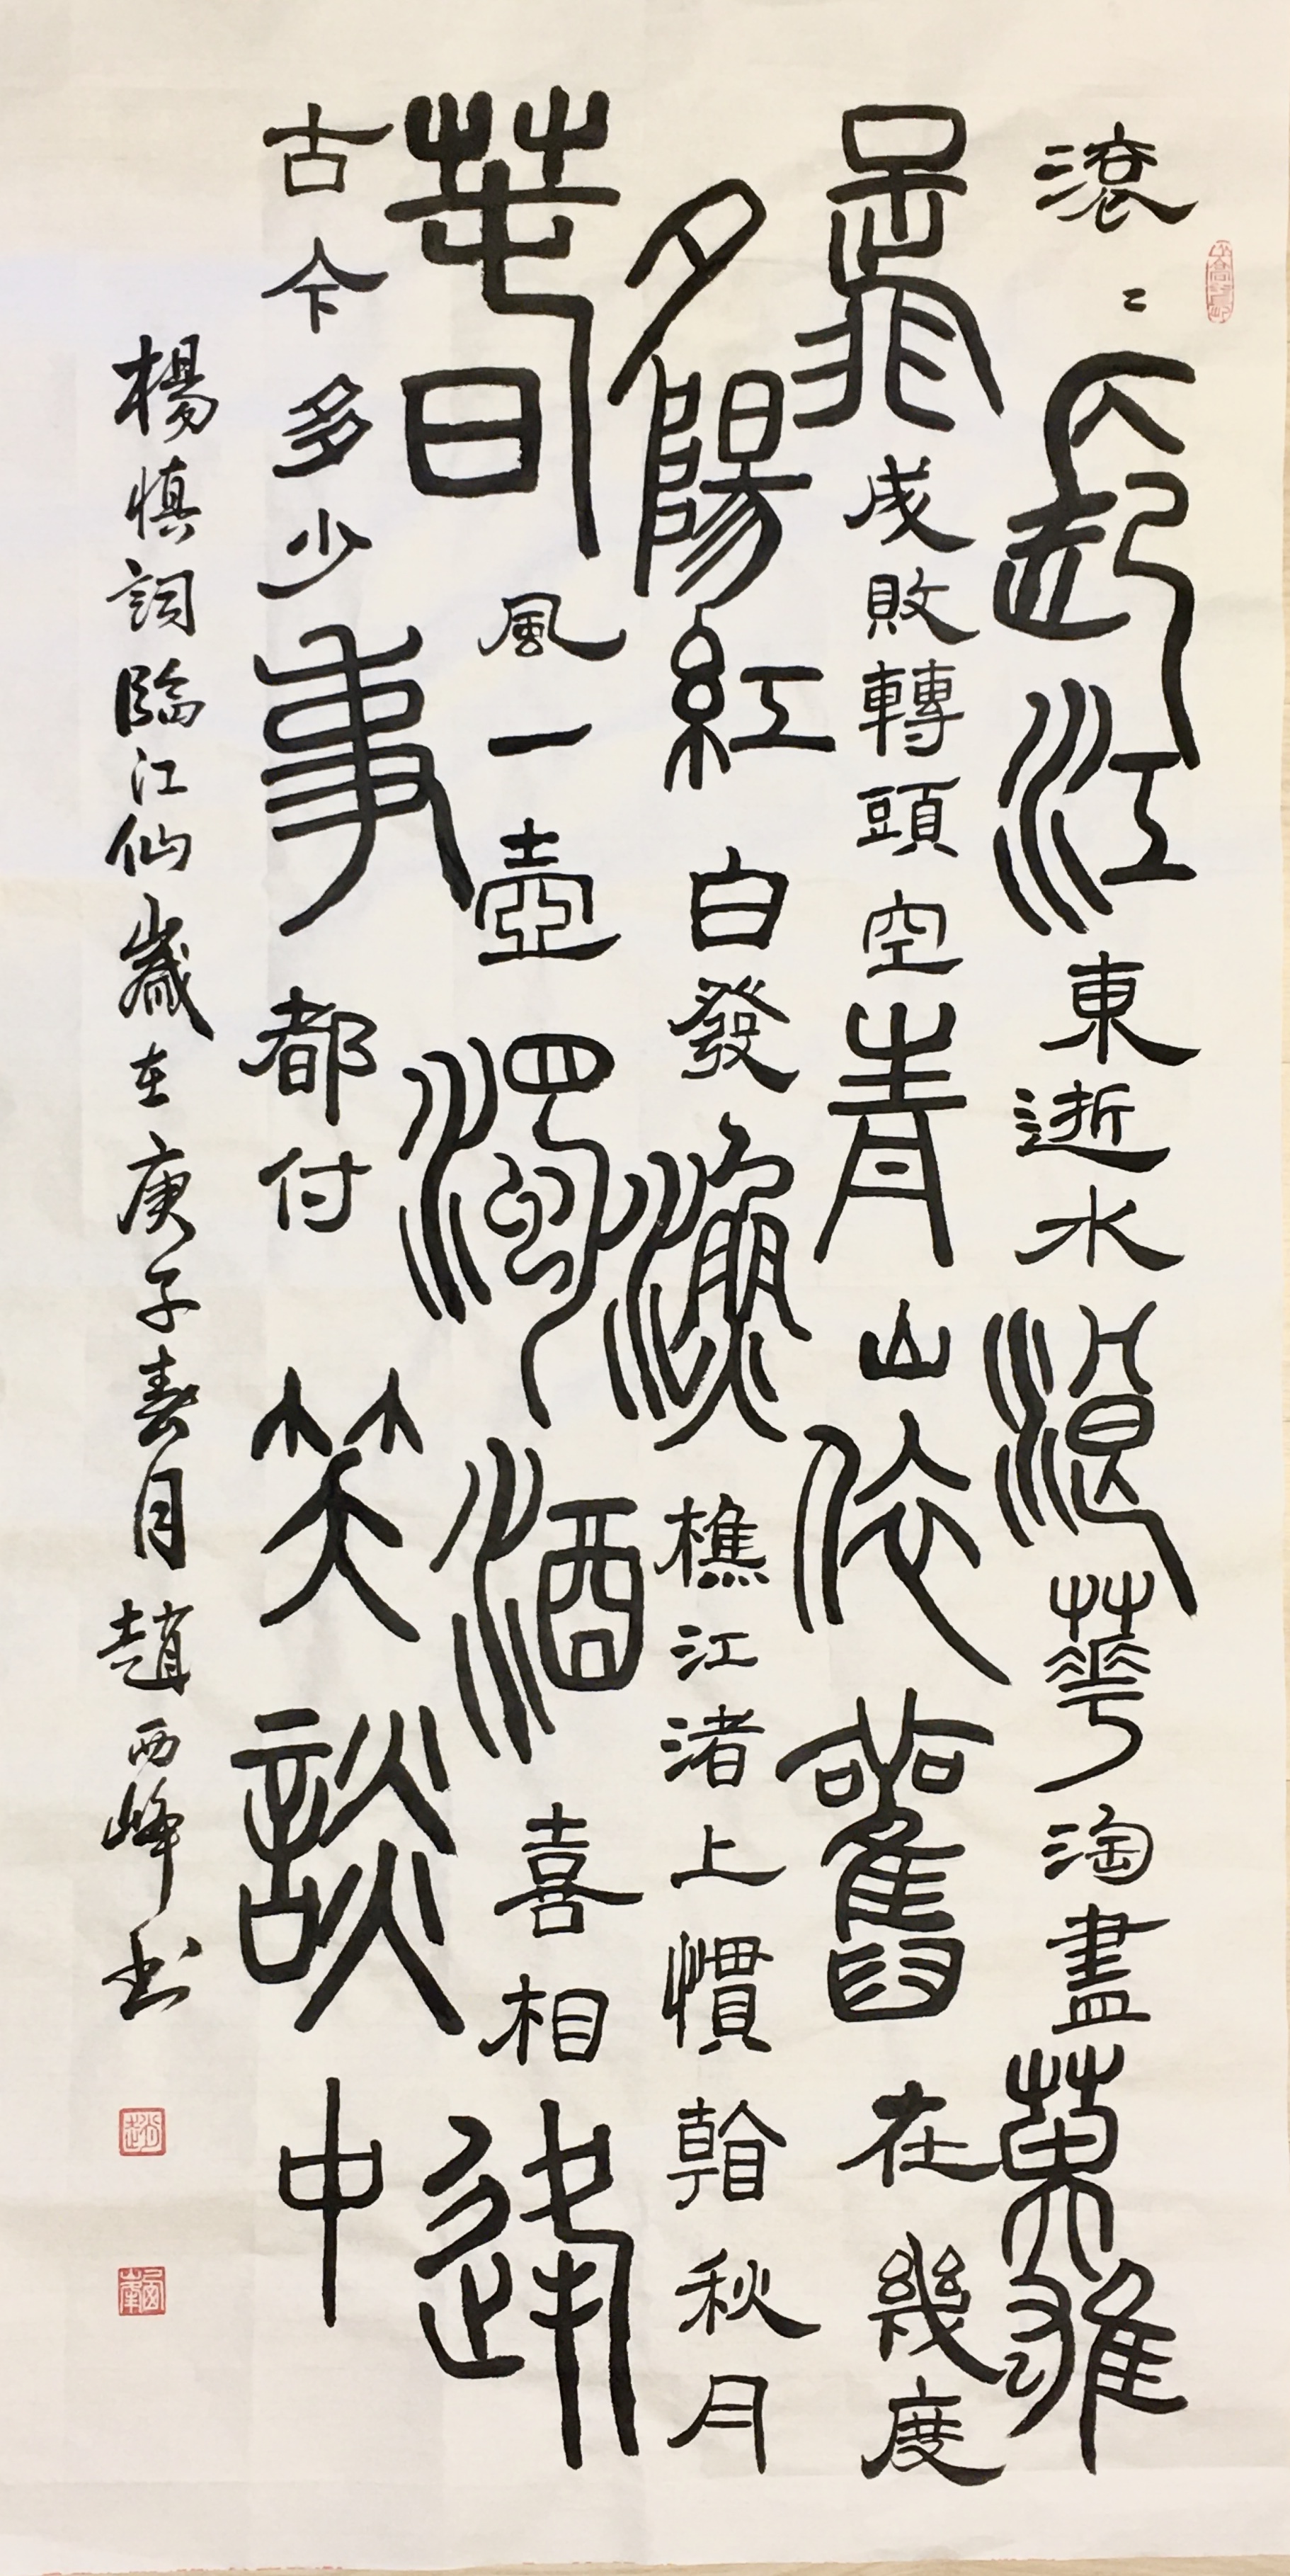 滾〻長江東逝水浪華淘盡英雄
是非成敗轉頭空青山依舊在幾度
夕陽紅白發漁樵江渚上慣看秋月
春風一壺濁酒喜相逢
古今多少事都付笑談中
楊慎詞臨江仙歲在庚子春月趙西峰书